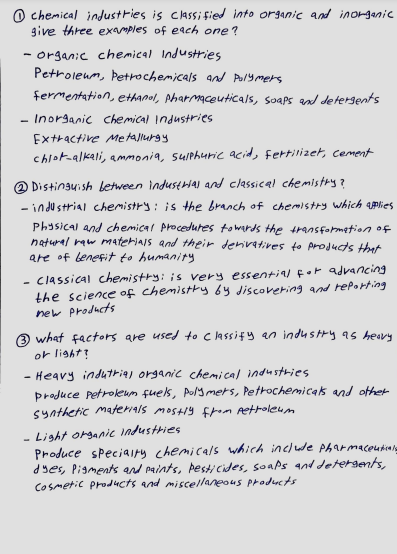 ① chemical industries is classified into organic and inorganic
give three examples of each one?
- organic chemical Industries
Petroleum, Petrochemicals and Polymers
fermentation, ethanol, pharmaceuticals, soaps and detergents
- Inorganic chemical Industries
Extractive Metallurgy
chlor-alkali, ammonia, sulphuric acid, fertilizer, cement
② Distinguish between industrial and classical chemistry?
- industrial chemistry: is the branch of chemistry which applies
Physical and chemical Procedures towards the transformation of
natural raw materials and their derivatives to products that
are of benefit to humanity
- classical chemistry: is very essential for advancing
the science of chemistry by discovering and reporting
new products
③ what factors are used to classify an industry as heavy
or light?
- Heavy indutrial organic chemical industries
produce petroleum fuels, polymers, Petrochemicals and other
synthetic materials mostly from petroleum
- Light organic industries
Produce specialty chemicals which include pharmaceuticals
dyes, Pigments and paints, Pesticides, soaps and detergents,
cosmetic products and miscellaneous products